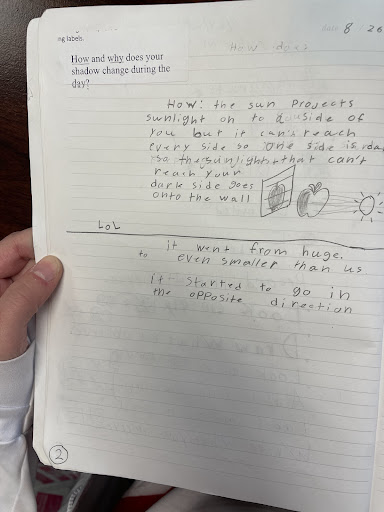 ng labels.
Date 8 26
How does
How and why does your
shadow change during the
day?
How: the sun Projects
sunlight on to a side of
you but it can't reach
every side so one side is
so the sunlight that can't
reach your
dark side goes
onto the wall
LOL
it went from huge.
to even smaller than us
it started to go in
the opposite direction
2